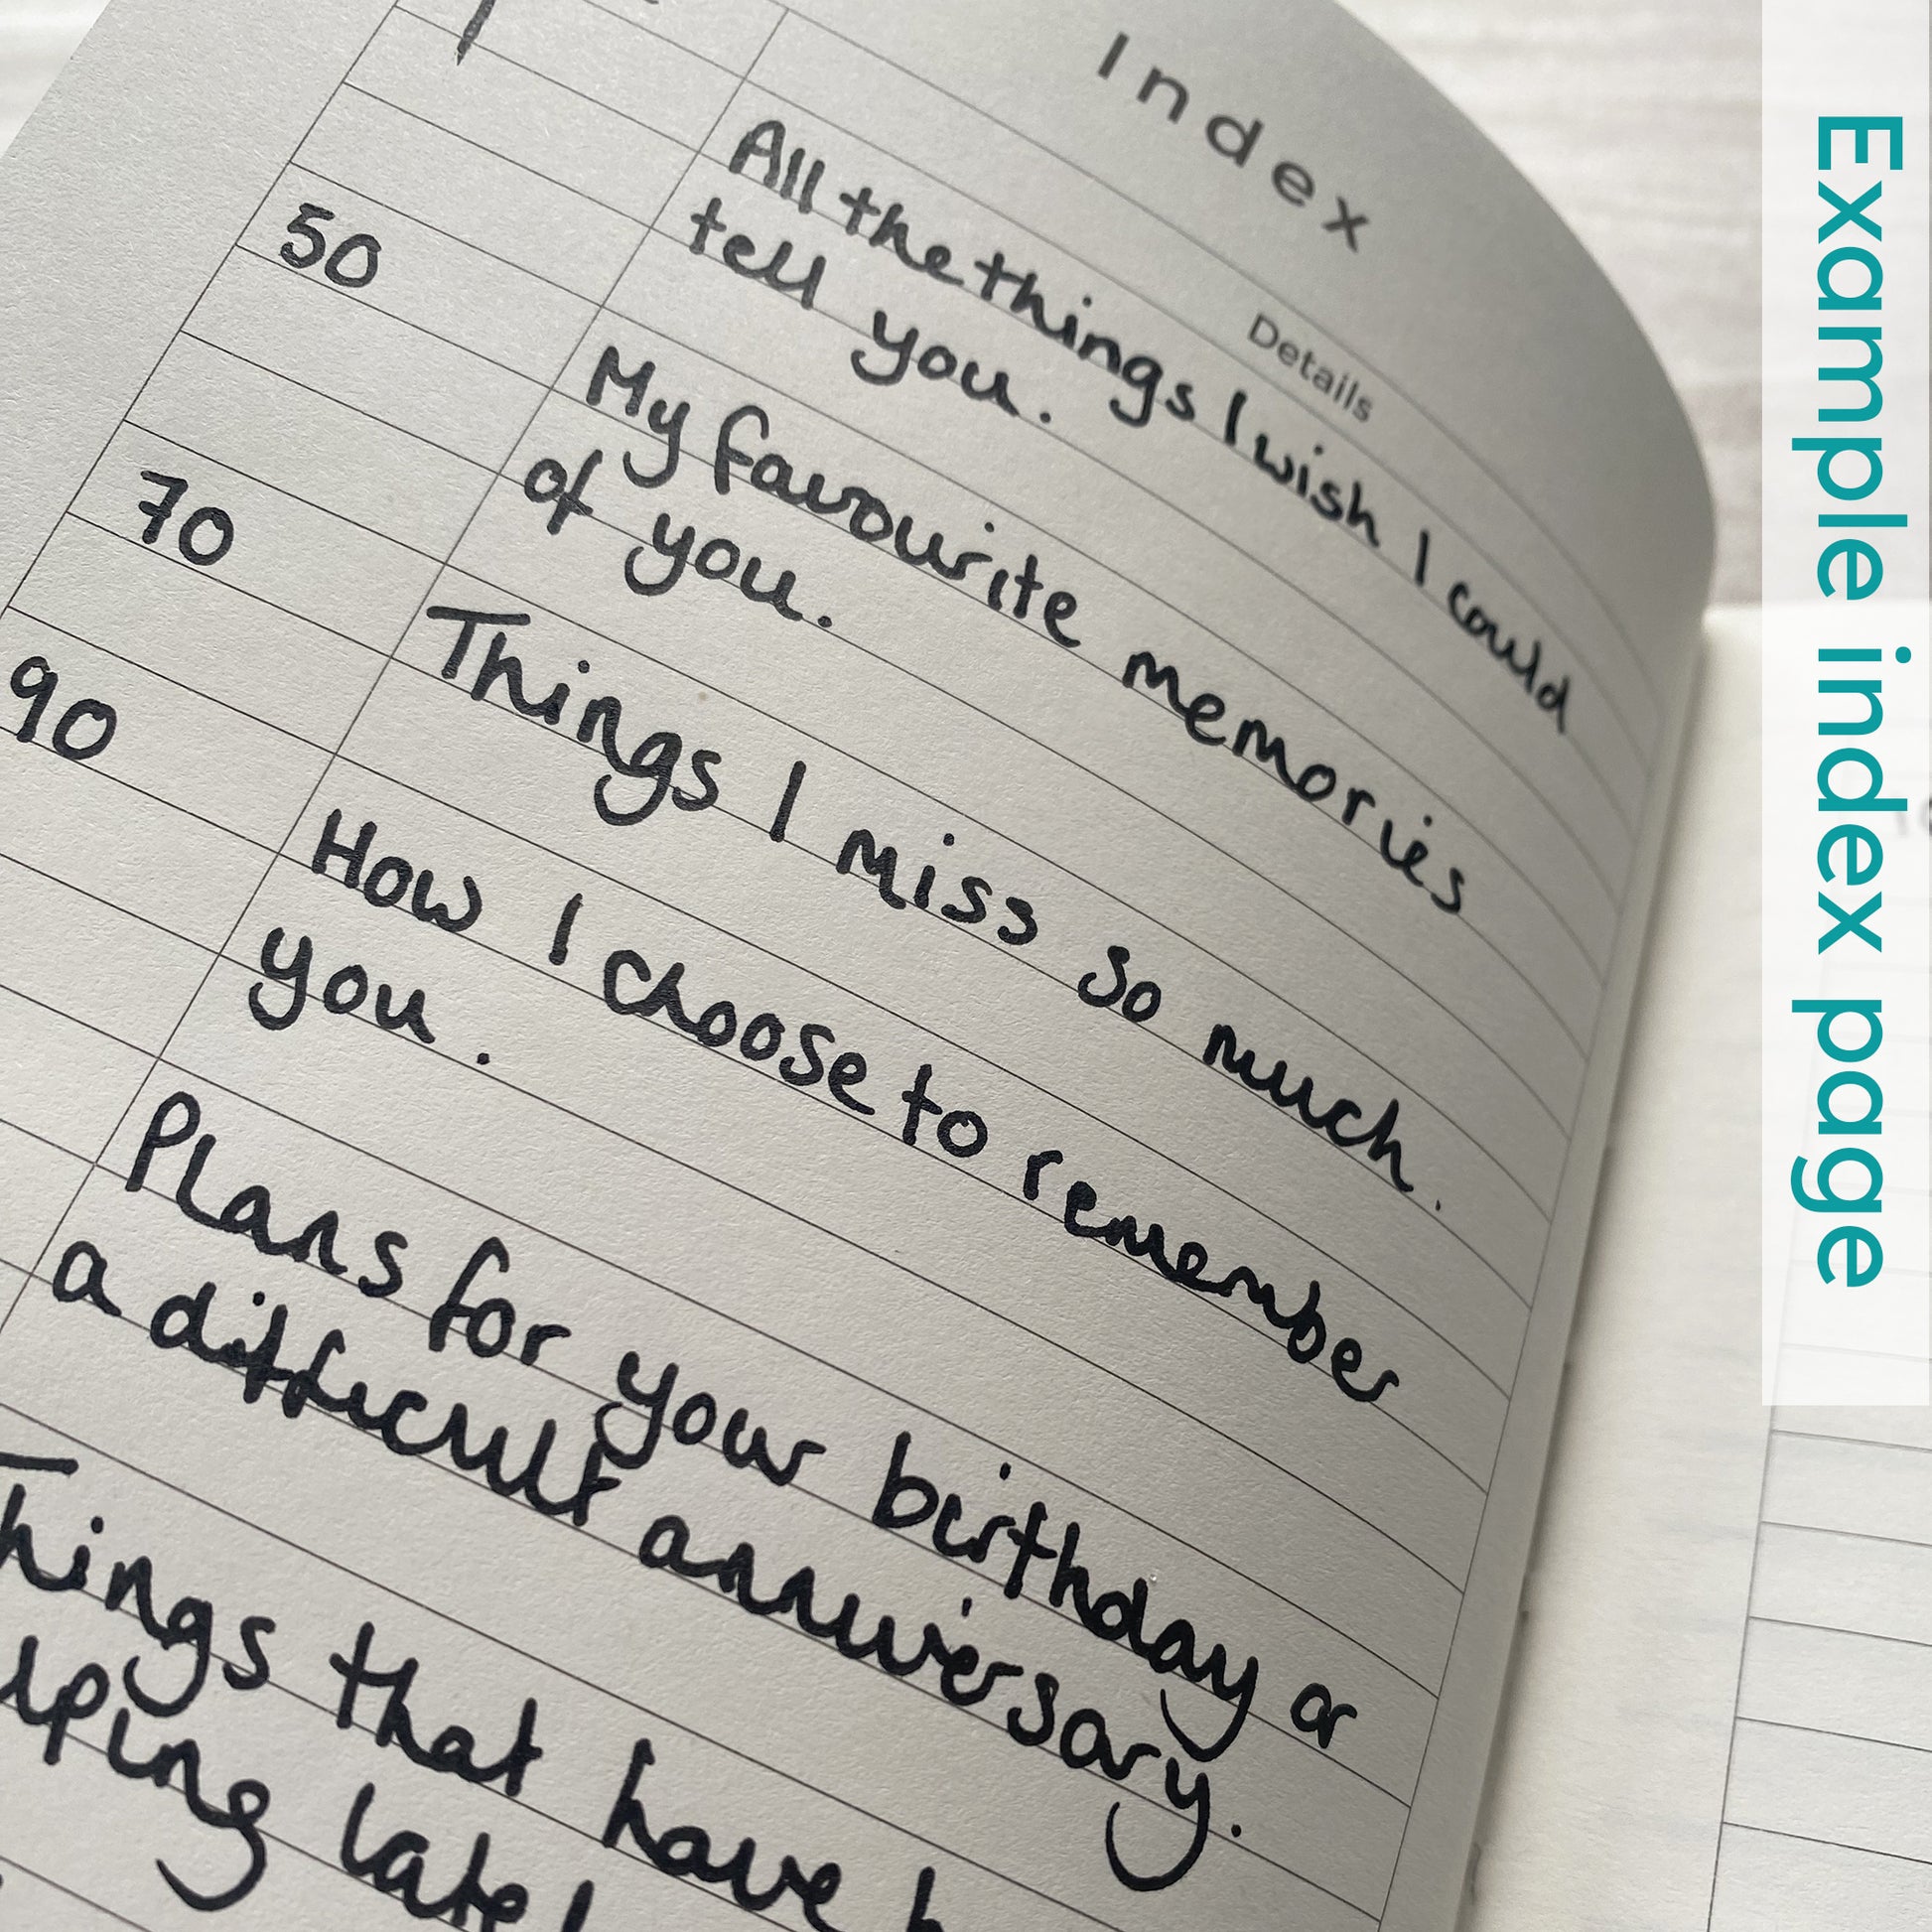 Index
Details
1
All the things I wish I could
tell you.
50
My favourite memories
of you.
70
Things I miss so much.
90
How I choose to remember
you.
Plans for your birthday or
a difficult anniversary.
Things that have
lping
Example index page